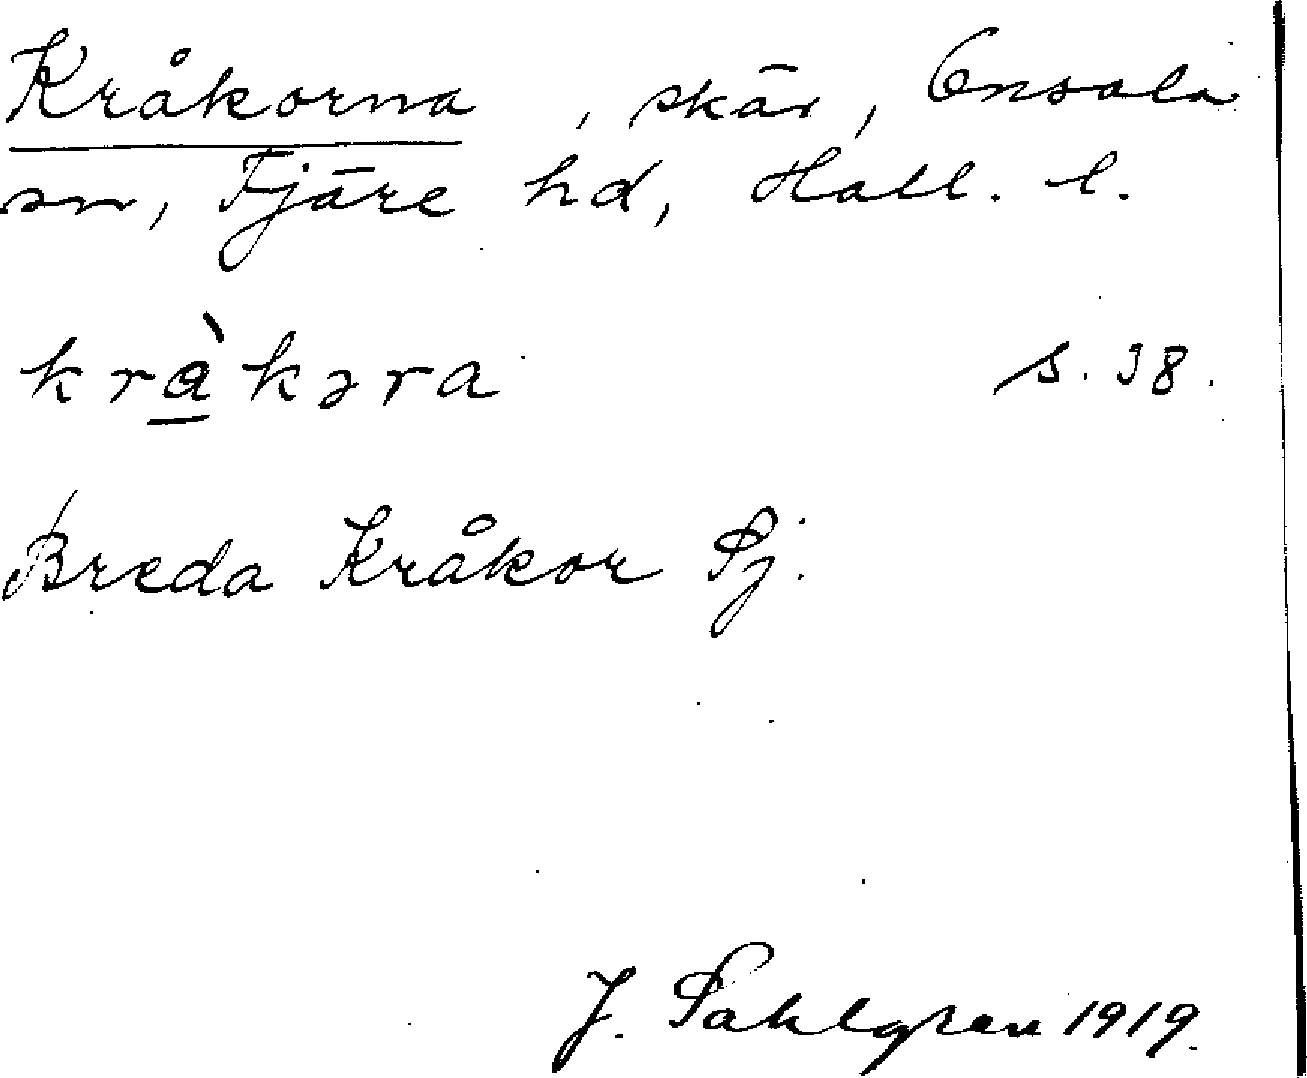 Kråkorna, skär, Onsala
sn, Fjäre hd, Hall. l.
kràkəra s. 38.
Breda Kråkor Sj.
J. Sahlgren 1919.